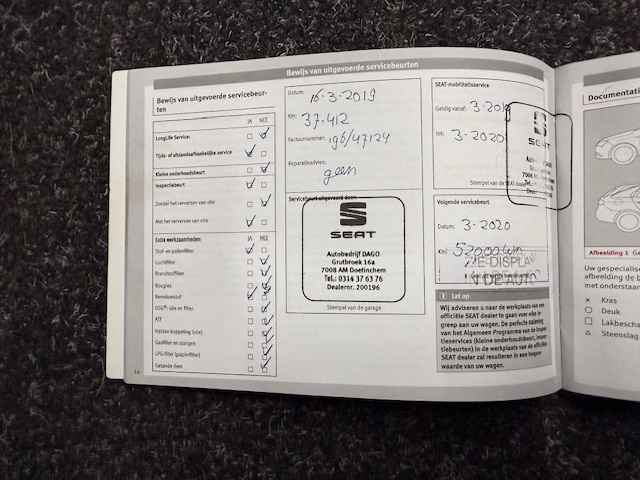 Bewijs van uitgevoerde servicebeurten
Bewijs van uitgevoerde servicebeur-
ten
JA NEE
LongLife Service:
Tijds- of afstandsafhankelijke service
Kleine onderhoudsbeurt
Inspectiebeurt
Zonder het verversen van olie
Met het verversen van olie
Extra werkzaamheden JA NEE
Stof- en pollenfilter
Luchtfilter
Brandstoffilter
Bougies
Remvloeistof
DSG®: olie en filter
ATF
Haldex-koppeling (olie)
Gasfilter en slangen
Getande riem
14
Datum: 16-3-2019
Km: 37.412
Factuurnummer: 196/47124
Reparatieadvies:
geen
Servicebeurt uitgevoerd door:
SEAT
Autobedrijf DAGO
Grutbroek 16a
7008 AM Doetinchem
Tel.: 0314 37 63 76
Dealernr. 200196
Stempel van de garage
SEAT-mobiliteitsservice
Geldig vanaf: 3-2019
tot: 3-2020
Stempel van de SEAT
SEAT
7008
Tel.:
Dealer
Volgende servicebeurt
Datum: 3-2020
Km:
DISPLAY
DE AUTO
Let op
Wij adviseren u naar de werkplaats van een
officiële SEAT dealer te gaan voor elke in-
greep aan uw wagen. De perfecte
van het Algemeen Programma van de Inspec-
tieservices (kleine onderhoudsbeurt, inspec-
tiebeurten) in de werkplaats van de officiële
SEAT dealer zal resulteren in een hogere
waarde van uw wagen.
Documentati
Afbeelding 1
Uw gespecialise
afbeelding de b
en met
× Kras
○ Deuk
□ Lakbescha
△ Steenslag